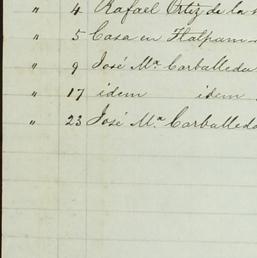 " 4 Rafael Ortiz de la
" 5 Casa en Tlalpam
" 9 José Mª Carballeda
" 17 idem idem
" 23 José Mª Carballeda